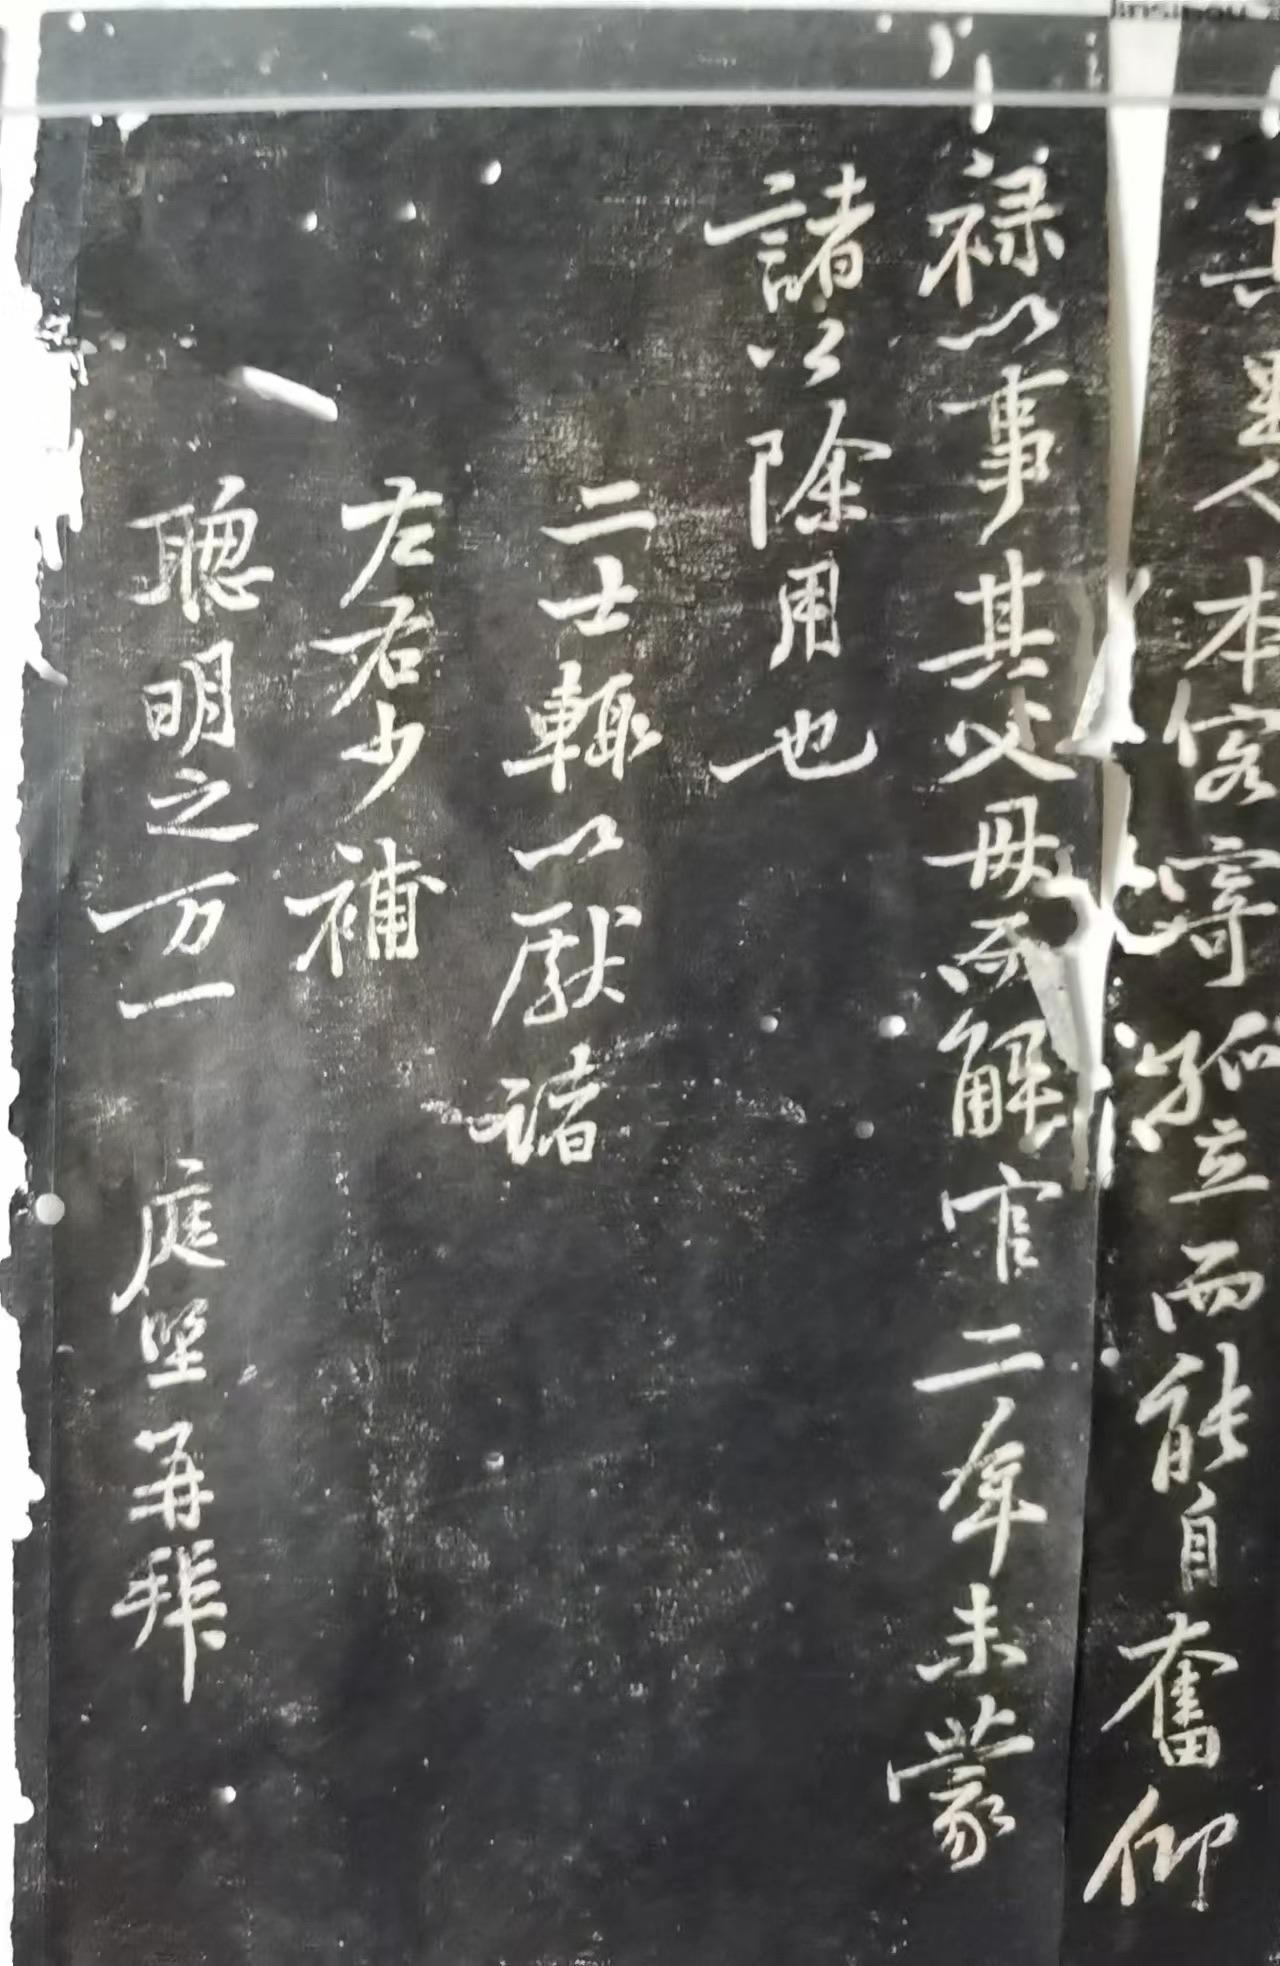 人本客寄孤立而能自奮仰
禄以事其父母而解官二年未蒙
諸公除用也
二士輒以獻諸
左右少補
聰明之万一 庭堅再拜